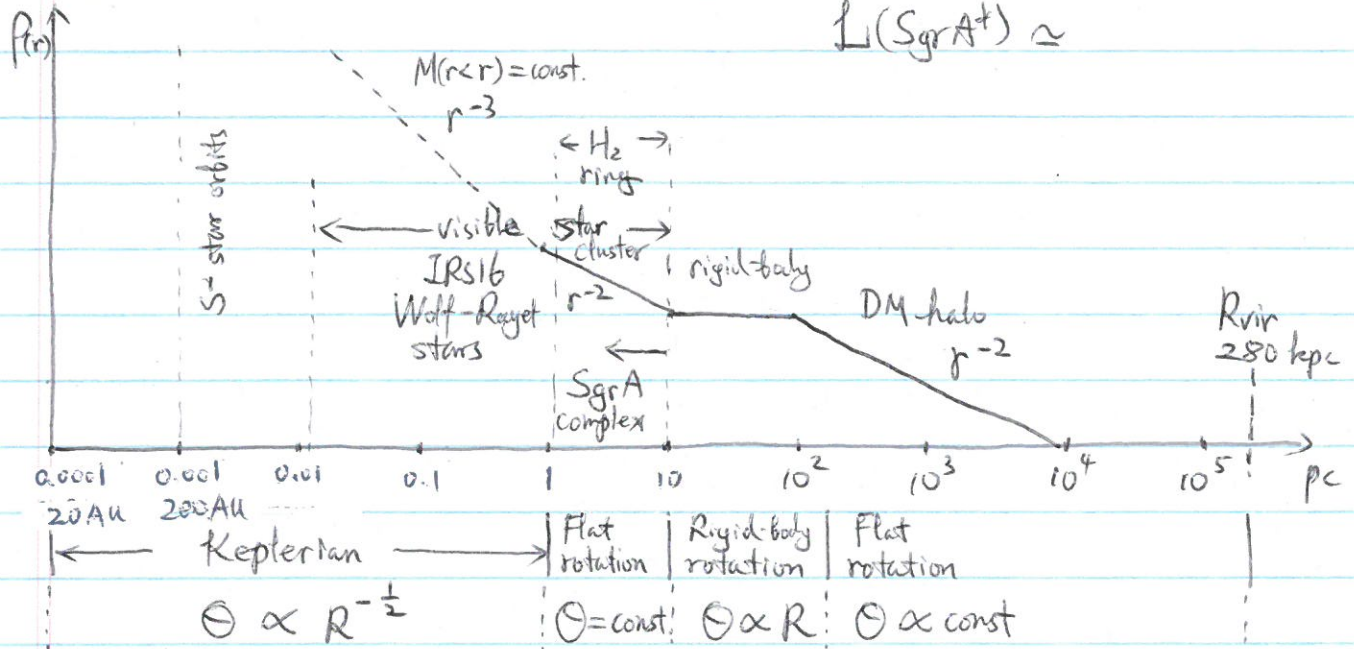 ρ(r)
L(SgrA*) ≃
M(r<r)=const.
r⁻³
← H₂ →
ring
S-star orbits
visible star
cluster
IRS16
Wolf-Rayet
stars
r⁻²
rigid-body
DM halo
r⁻²
Rvir
280 kpc
SgrA
complex
0.0001 0.001 0.01 0.1 1 10 10² 10³ 10⁴ 10⁵ pc
20AU 200AU
Keplerian
Flat
rotation
Rigid-body
rotation
Flat
rotation
Θ ∝ R^-1/2
Θ=const.
Θ∝R
Θ ∝ const